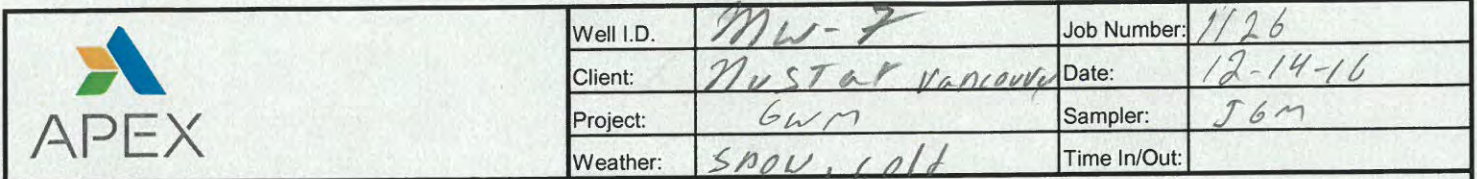 Well I.D. MW-7 Job Number: 1126
Client: NuStar Vancouver Date: 12-14-16
Project: GWM Sampler: JGM
Weather: snow, cold Time In/Out:
APEX